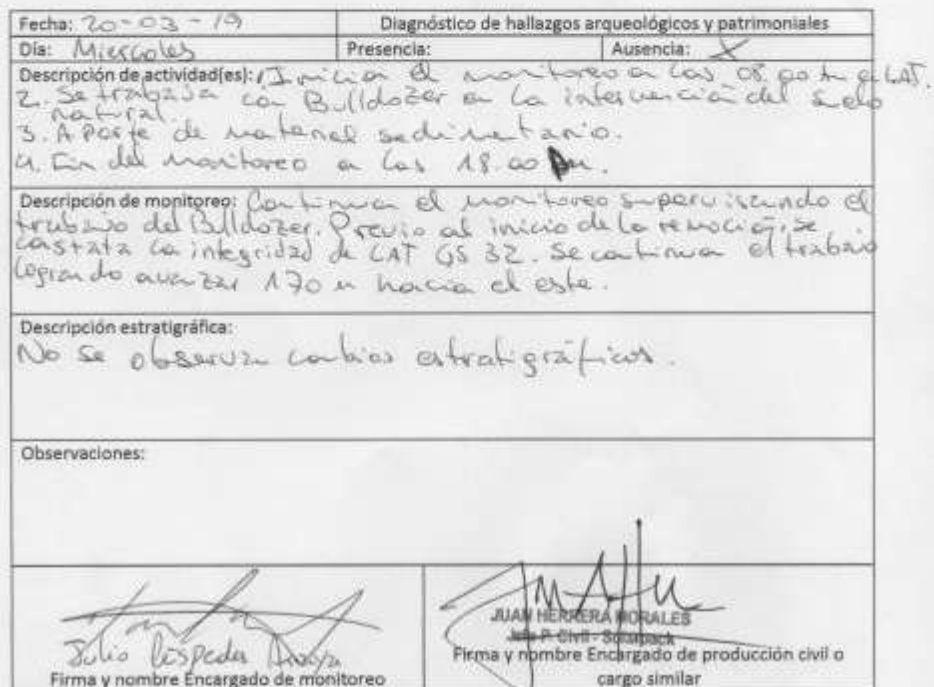 Fecha: 20-03-19 Diagnóstico de hallazgos arqueológicos y patrimoniales
Día: Miercoles Presencia: Ausencia: X
Descripción de actividad(es): 1. Inician el monitoreo a las 08.00 en LAT.
2. Se trabaja con Bulldozer en la intervención del suelo
natural.
3. Aporte de material sedimentario.
4. Fin del monitoreo a las 18.00
Descripción de monitoreo: Continua el monitoreo supervisando el
trabajo del Bulldozer. Previo al inicio de la remoción, se
constata la integridad de LAT GS 32. Se continua el trabajo
logrando avanzar 170 m hacia el este.
Descripción estratigráfica:
No se observan cambios estratigráficos.
Observaciones:
Julio Céspedes Araya
Firma y nombre Encargado de monitoreo
JUAN HERRERA MORALES
Jefe P. Civil - Solarpack
Firma y nombre Encargado de producción civil o
cargo similar